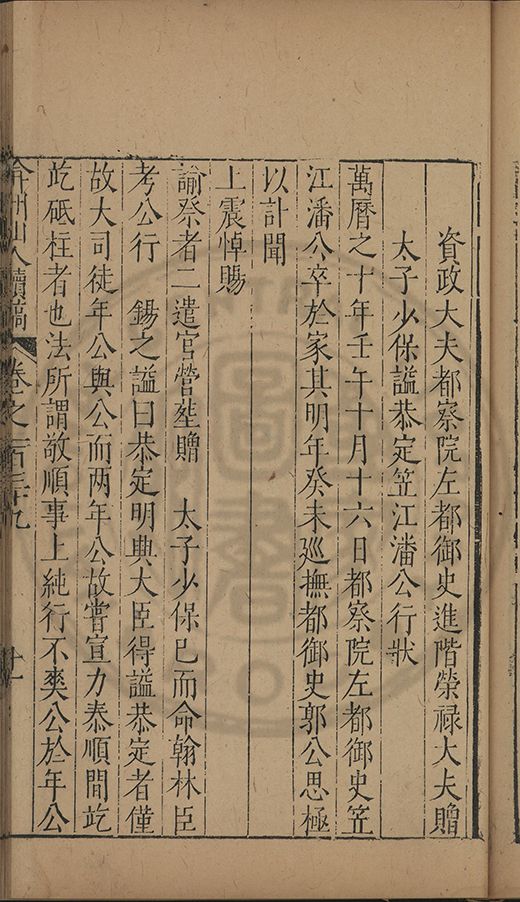 資政大夫都察院左都御史進階榮祿大夫贈
太子少保謚恭定笠江潘公行狀
萬曆之十年壬午十月十六日都察院左都御史笠
江潘公卒於家其明年癸未巡撫都御史郭公思極
以訃聞
上震悼賜
諭祭者二遣官營塟贈　太子少保已而命翰林臣
考公行　錫之謚曰恭定明典大臣得謚恭定者僅
故大司徒年公與公而两年公故嘗宣力泰順間訖
屹砥柱者也法所謂敬順事上純行不爽公於年公
弇州山人續稿
卷之一百三十九
十一